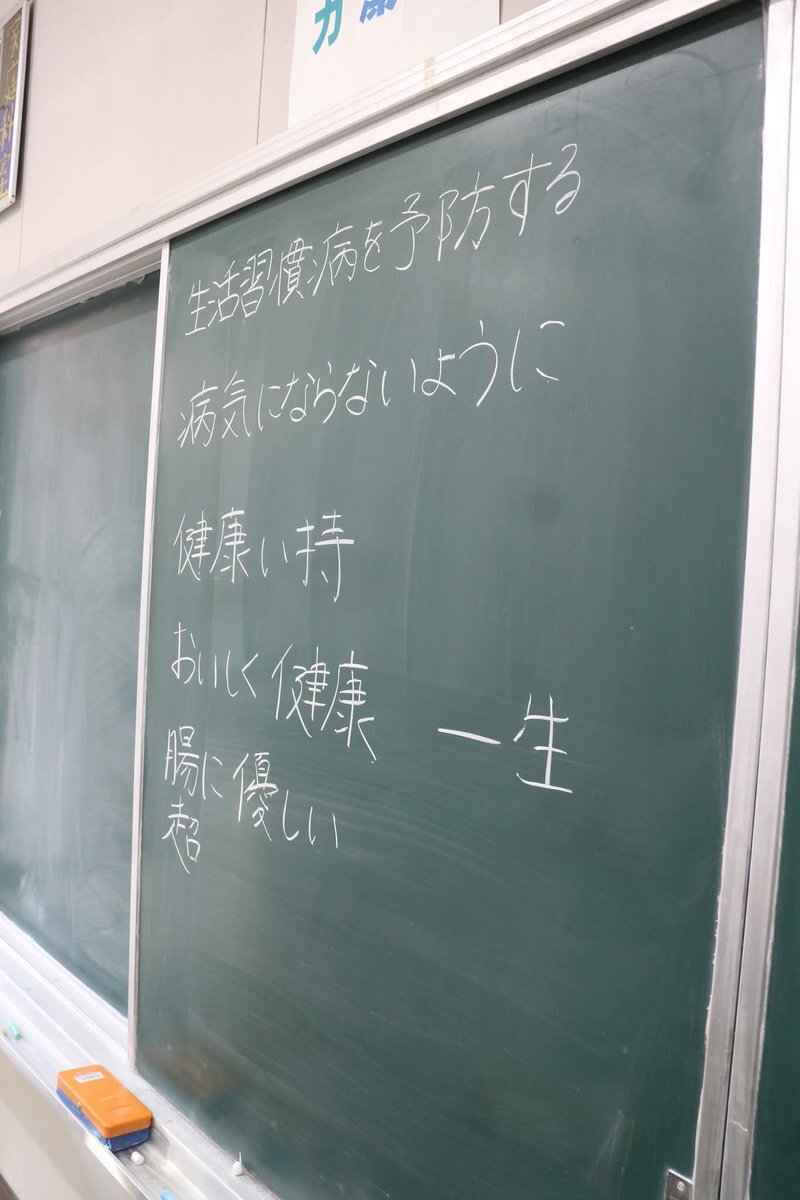 家庭科室
生活習慣病を予防する
病気にならないように
健康い持
おいしく健康 一生
腸に優しい
超